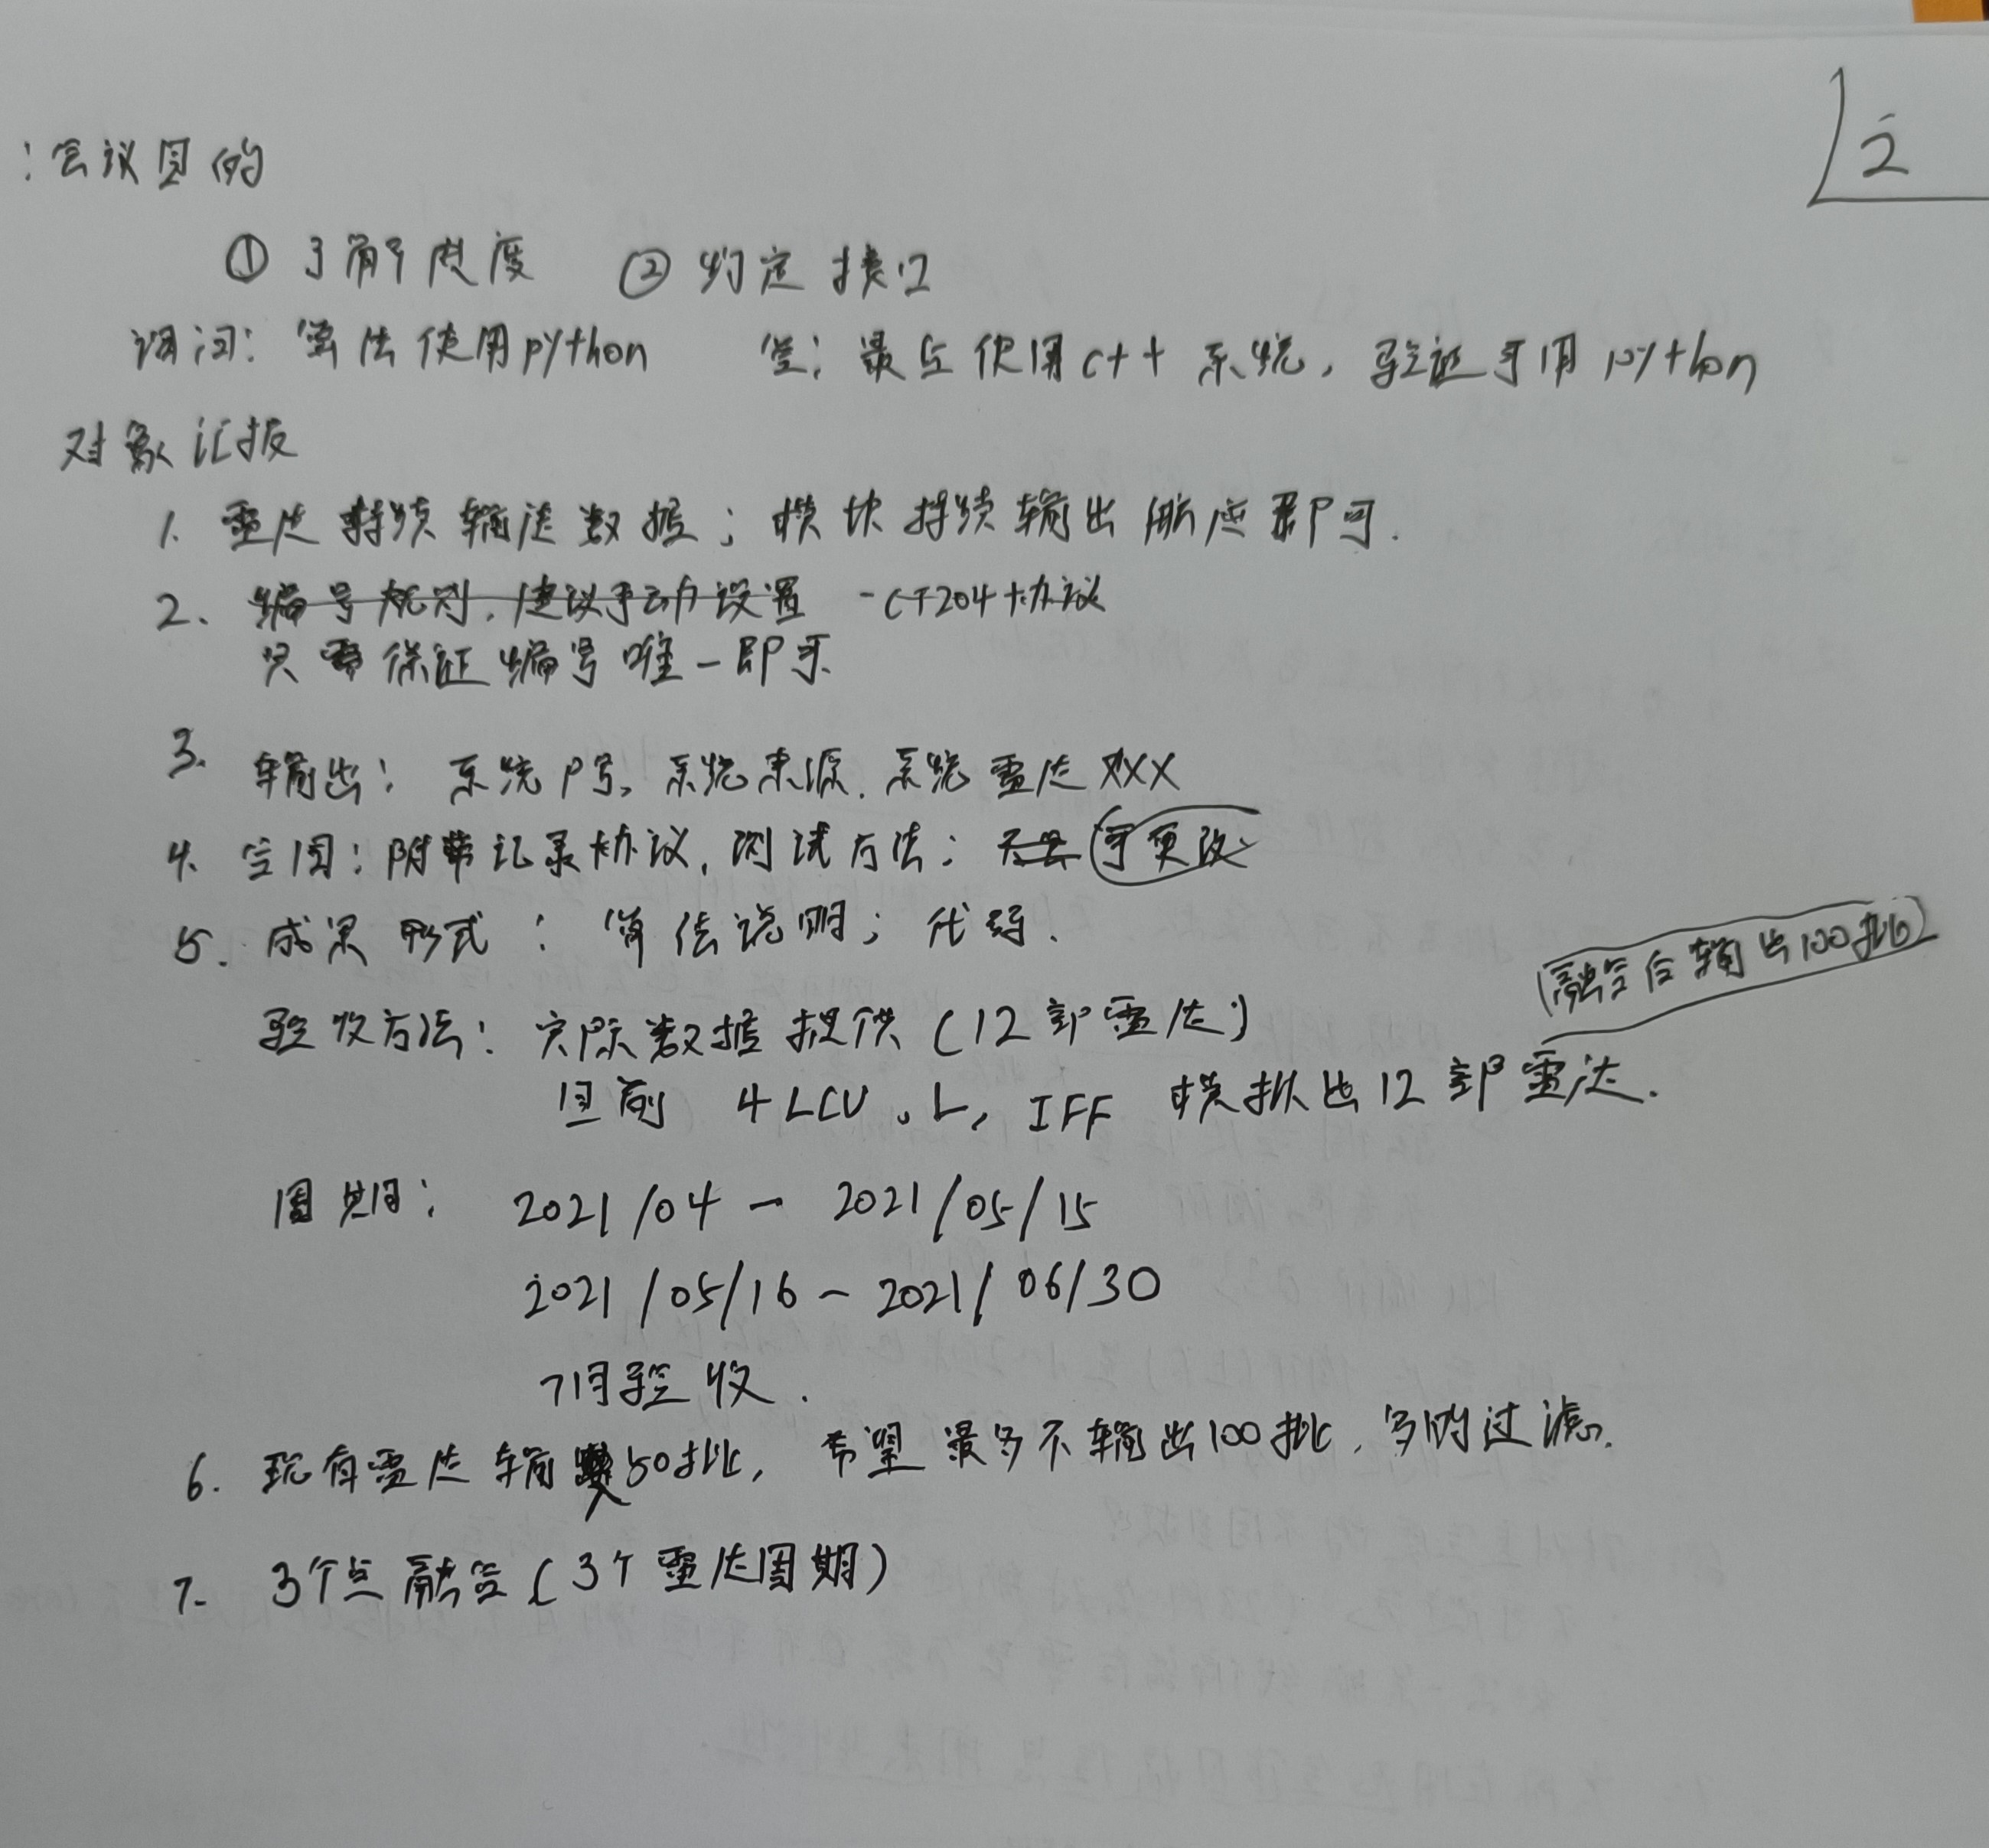 2
：会议目的
① 了解进度 ② 约定接口
询问：算法使用python 答：最后使用c++系统，验证可用python
对象汇报
1. 雷达持续输送数据；模块持续输出航迹即可.
2、编号规则，建议手动设置 -CT204协议
只需保证编号唯一即可
3. 输出：系统号，系统来源，系统雷达XXX
4. 空图：附带记录协议，测试方法； 可更改
5. 成果形式：算法说明；代码.
(融合后输出100批)
验收方法：实际数据提供(12部雷达)
目前 4LCU、L, IFF 模拟出12部雷达.
周期：2021/04 - 2021/05/15
2021/05/16 - 2021/06/30
7月验收.
6. 现有雷达输入50批，希望最多不输出100批，多的过滤.
7- 3个点融合(3个雷达周期)